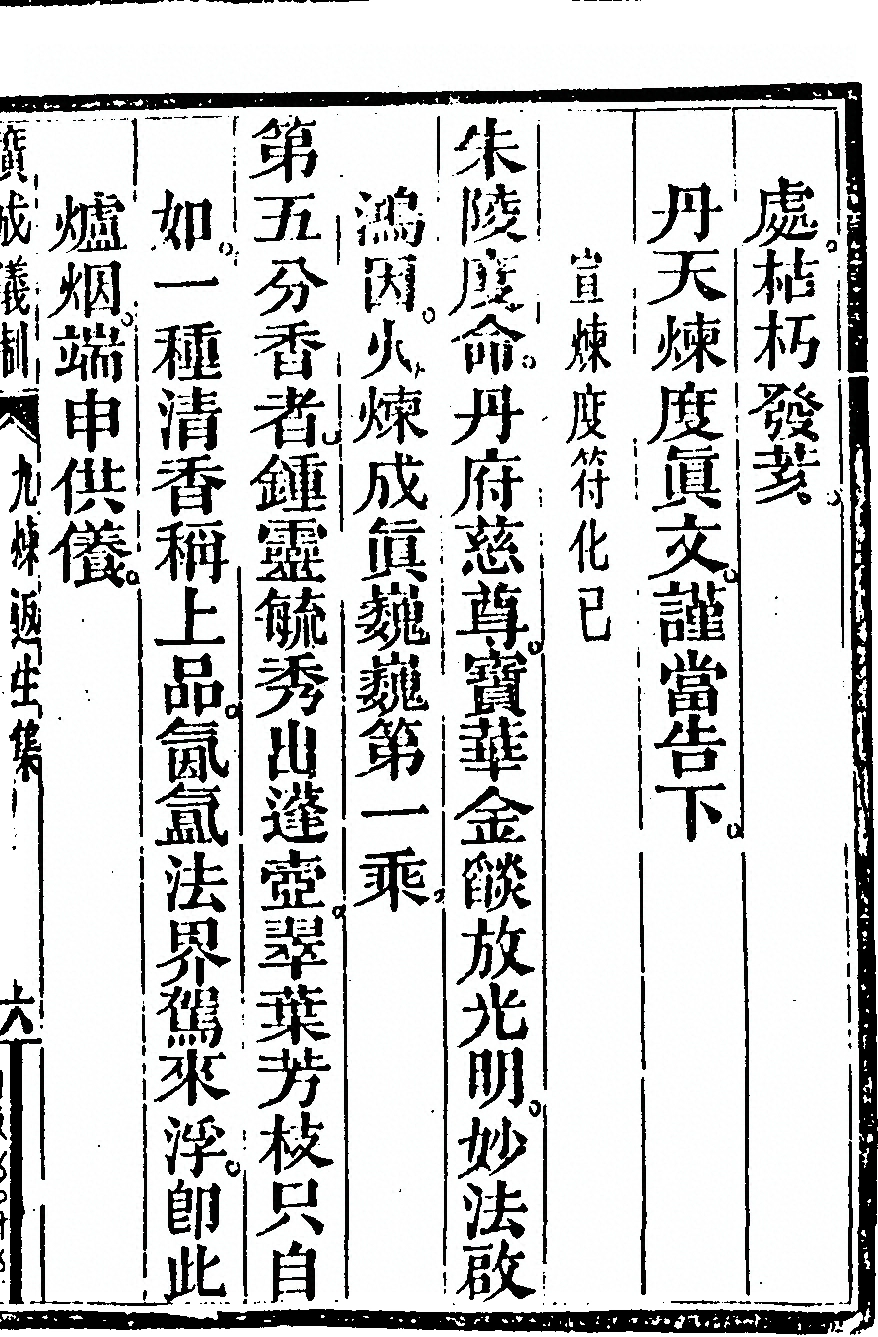 處。枯朽發荄。
丹天煉度眞文。謹當告下。
宣煉度符化已
朱陵度命。丹府慈尊。寶華金燄放光明。妙法啟
鴻因。火煉成眞巍巍第一乘。
第五分香者。鍾靈毓秀出蓬壺。翠葉芳枝只自
如。一種清香稱上品。氤氳法界駕來浮。卽此
爐烟。端申供儀。
廣成儀制
九煉返生集
六